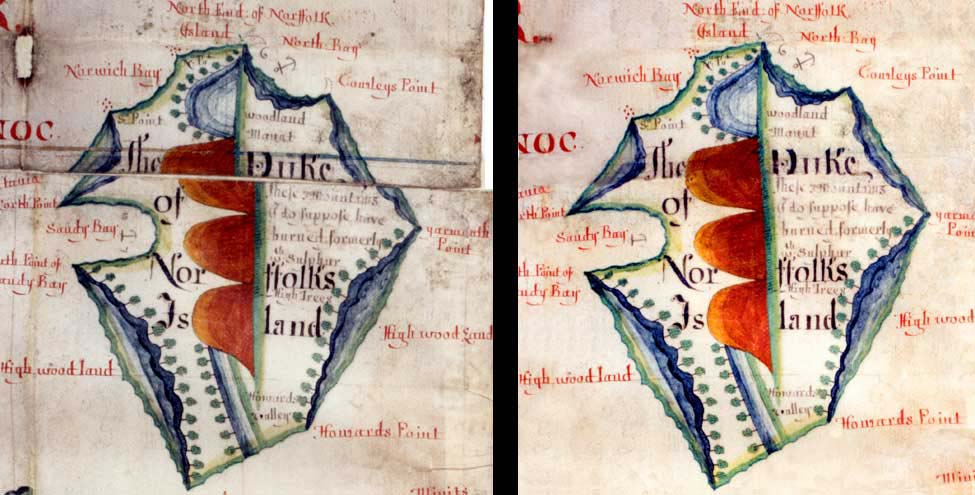 North End of Norfolk
Island
North Bay
Norwich Bay
Comleys Point
S. Point
woodland
NOC.
The Duke
These Mountains
North Point
of
I do suppose have
Sandy Bay
burned formerly
yarmouth
Point
Sulphur
North Point of
Sandy Bay
Nor ffolks
High Trees
Is land
High wood land
High wood land
Howards
valley
Howards Point
North End of Norffolk
Island
North Bay
Norwich Bay
Comleys Point
S. Point
woodland
NOC.
The Duke
These Mountains
of
I do suppose have
Sandy Bay
burned formerly
Sulphur
Nor ffolks
High Trees
Is land
High wood
High wood land
Howards
valley
Howards Point